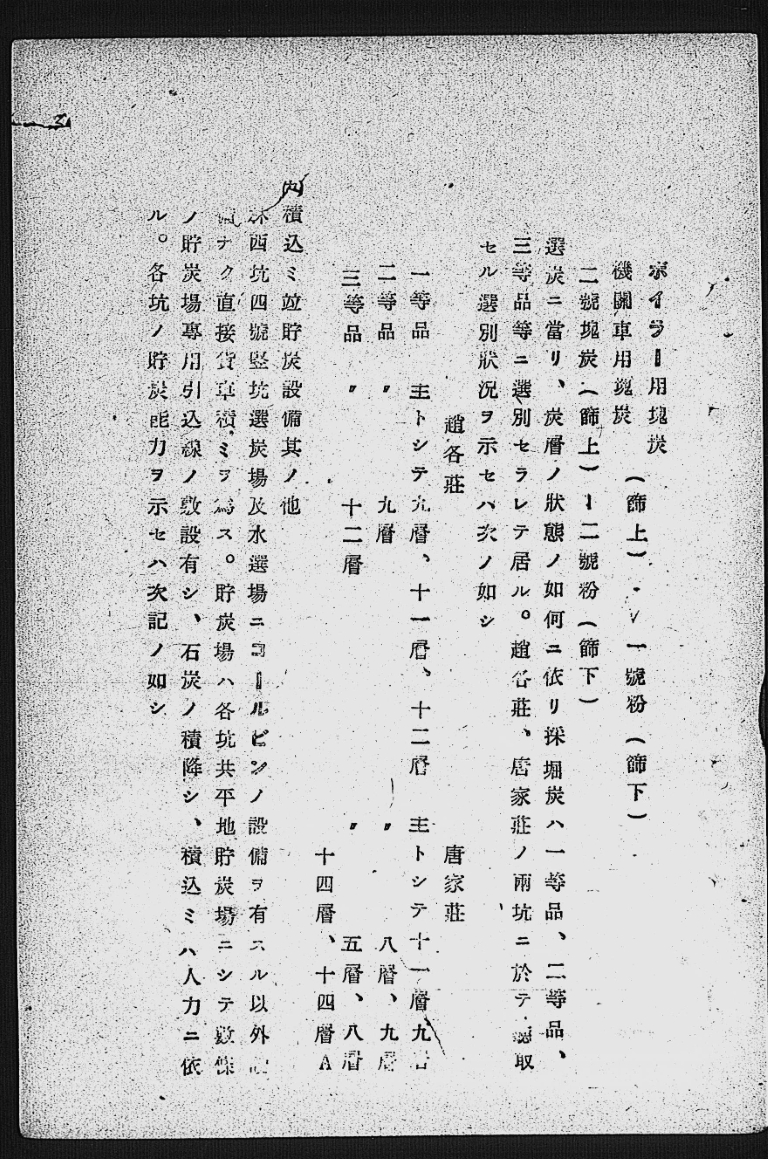 ボイラー用塊炭
機關車用塊炭 (篩上)・一號粉(篩下)
二號塊炭(篩上)ー二號粉(篩下)
選炭ニ當リ、炭層ノ狀態ノ如何ニ依リ採掘炭ハ一等品、二等品、
三等品等ニ選別セラレテ居ル。趙各莊、唐家莊ノ兩坑ニ於テ聽取
セル選別狀況ヲ示セバ次ノ如シ
趙各莊 唐家莊
一等品 主トシテ九層、十一層、十二層 主トシテ十一層、九層
二等品 〃 九層 〃 八層、九層
三等品 〃 十二層 〃 五層、八層
十四層、十四層A
積込ミ竝貯炭設備其ノ他
林西坑四號竪坑選炭場及水選場ニコールビンノ設備ヲ有スル以外
ナク直接貨車積ミヲ爲ス。貯炭場ハ各坑共平地貯炭場ニシテ數條
ノ貯炭場專用引込線ノ敷設有シ、石炭ノ積降シ、積込ミハ人力ニ依
ル。各坑ノ貯炭能力ヲ示セハ次記ノ如シ